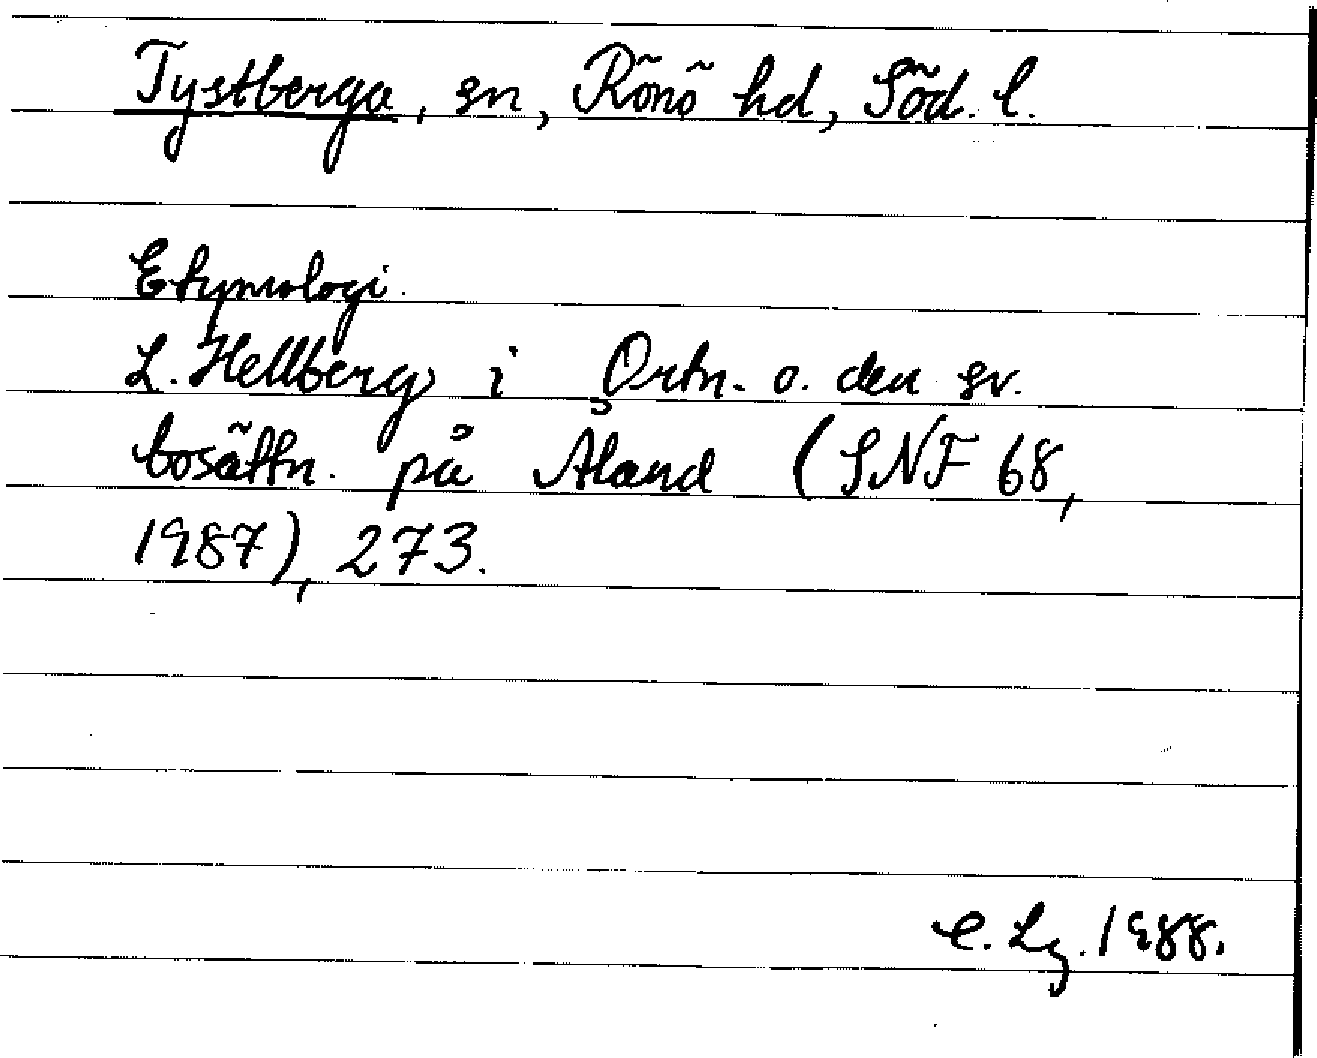 Tystberga, sn, Rönö hd, Söd. l.
Etymologi.
L. Hellberg i Ortn. o. den sv.
bosättn. på Åland (SNF 68,
1987), 273.
C. Lg. 1988.